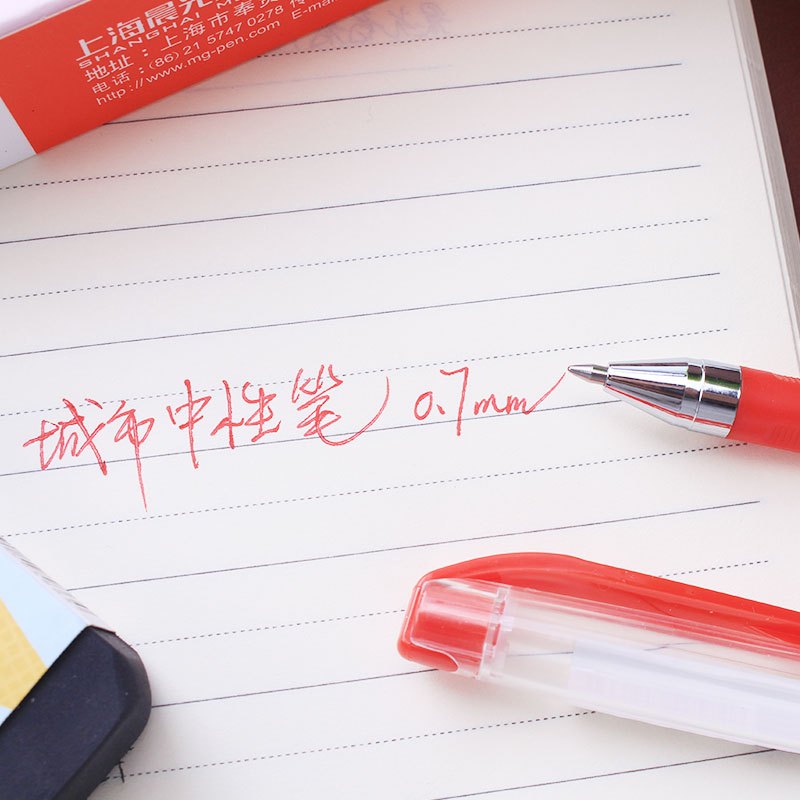 上海晨光
SHANGHAI M
地址：上海市奉贤
电话：(86) 21 5747 0278 传
http://www.mg-pen.com E-ma
城市中性笔 0.7mm